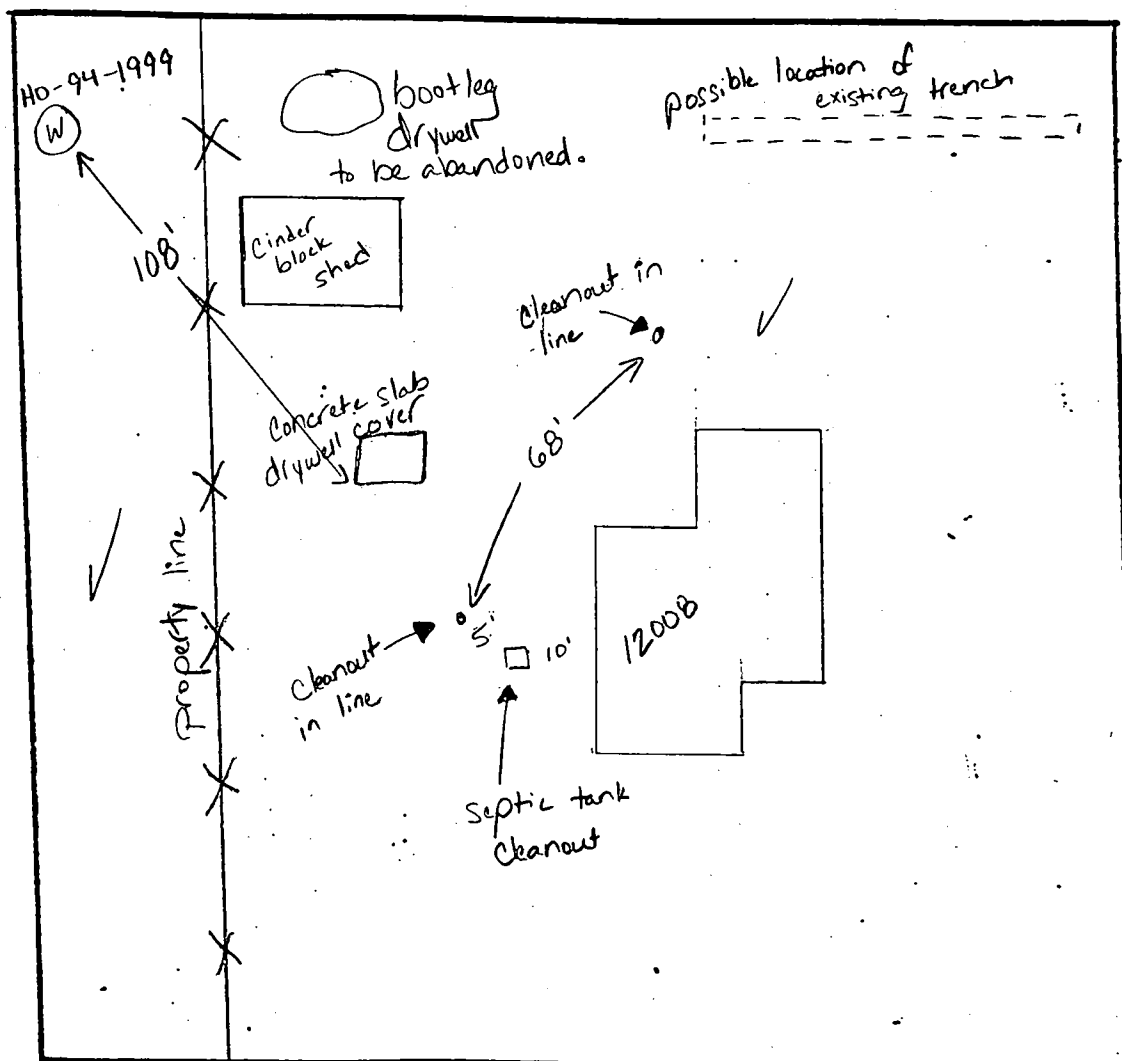 HO-94-1999
W
108'
bootleg
drywell
to be abandoned.
possible location of
existing trench
Cinder
block
shed
Cleanout in
line
Concrete slab
drywell cover
68'
property line
5'
10'
12008
Cleanout
in line
Septic tank
Cleanout